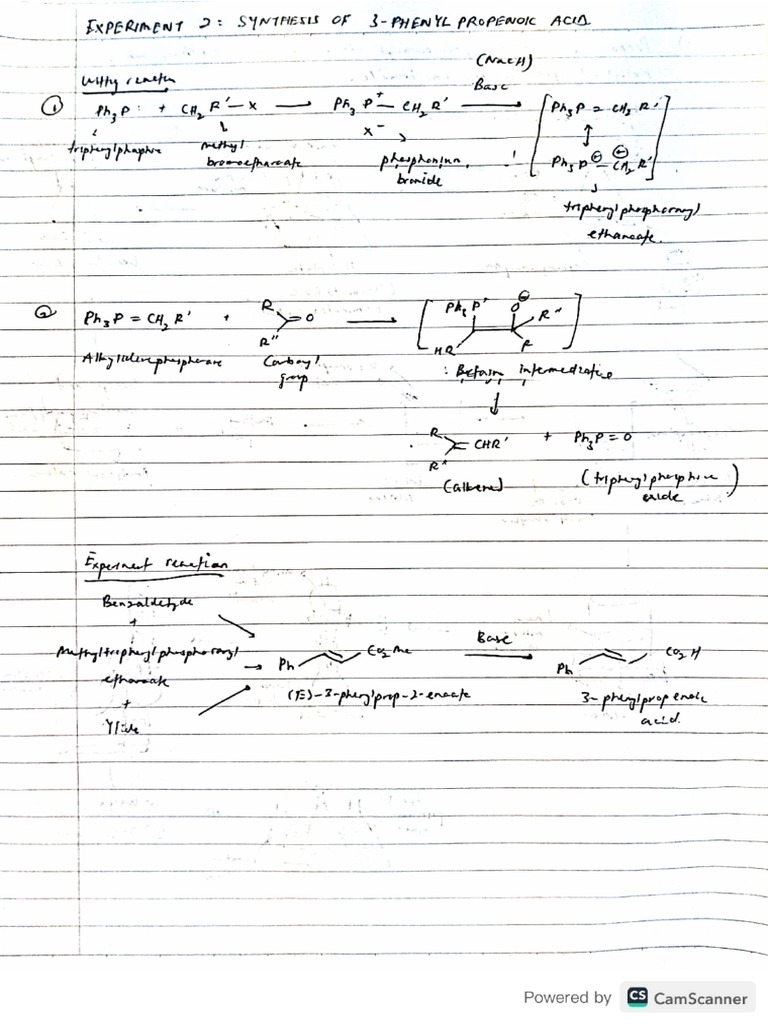 EXPERIMENT 2: SYNTHESIS OF 3-PHENYL PROPENOIC ACID
Wittig reaction
(NaOH)
① Ph₃P: + CH₂R'—X → Ph₃P⁺—CH₂R' Base → [Ph₃P = CH₂R'
X⁻
triphenylphosphine
methyl bromoethanoate
phosphonium bromide
Ph₃P⊖—CH₂R']
triphenylphosphoranyl
ethanoate.
② Ph₃P = CH₂R' + R R'' =O → [Ph₃P⁺ O⊖ R'' HR' R]
Alkylidenephosphorane
Carbonyl group
: Betain intermediative
R R'' =CHR' + Ph₃P=O
(alkene)
(triphenylphosphine oxide)
Experiment reaction
Benzaldehyde
+
Methyltriphenylphosphoranyl
ethanoate
+
Ylide
Ph CO₂Me Base → Ph CO₂H
(E)-3-phenylprop-2-enoate
3-phenylpropenoic
acid.
Powered by CS CamScanner